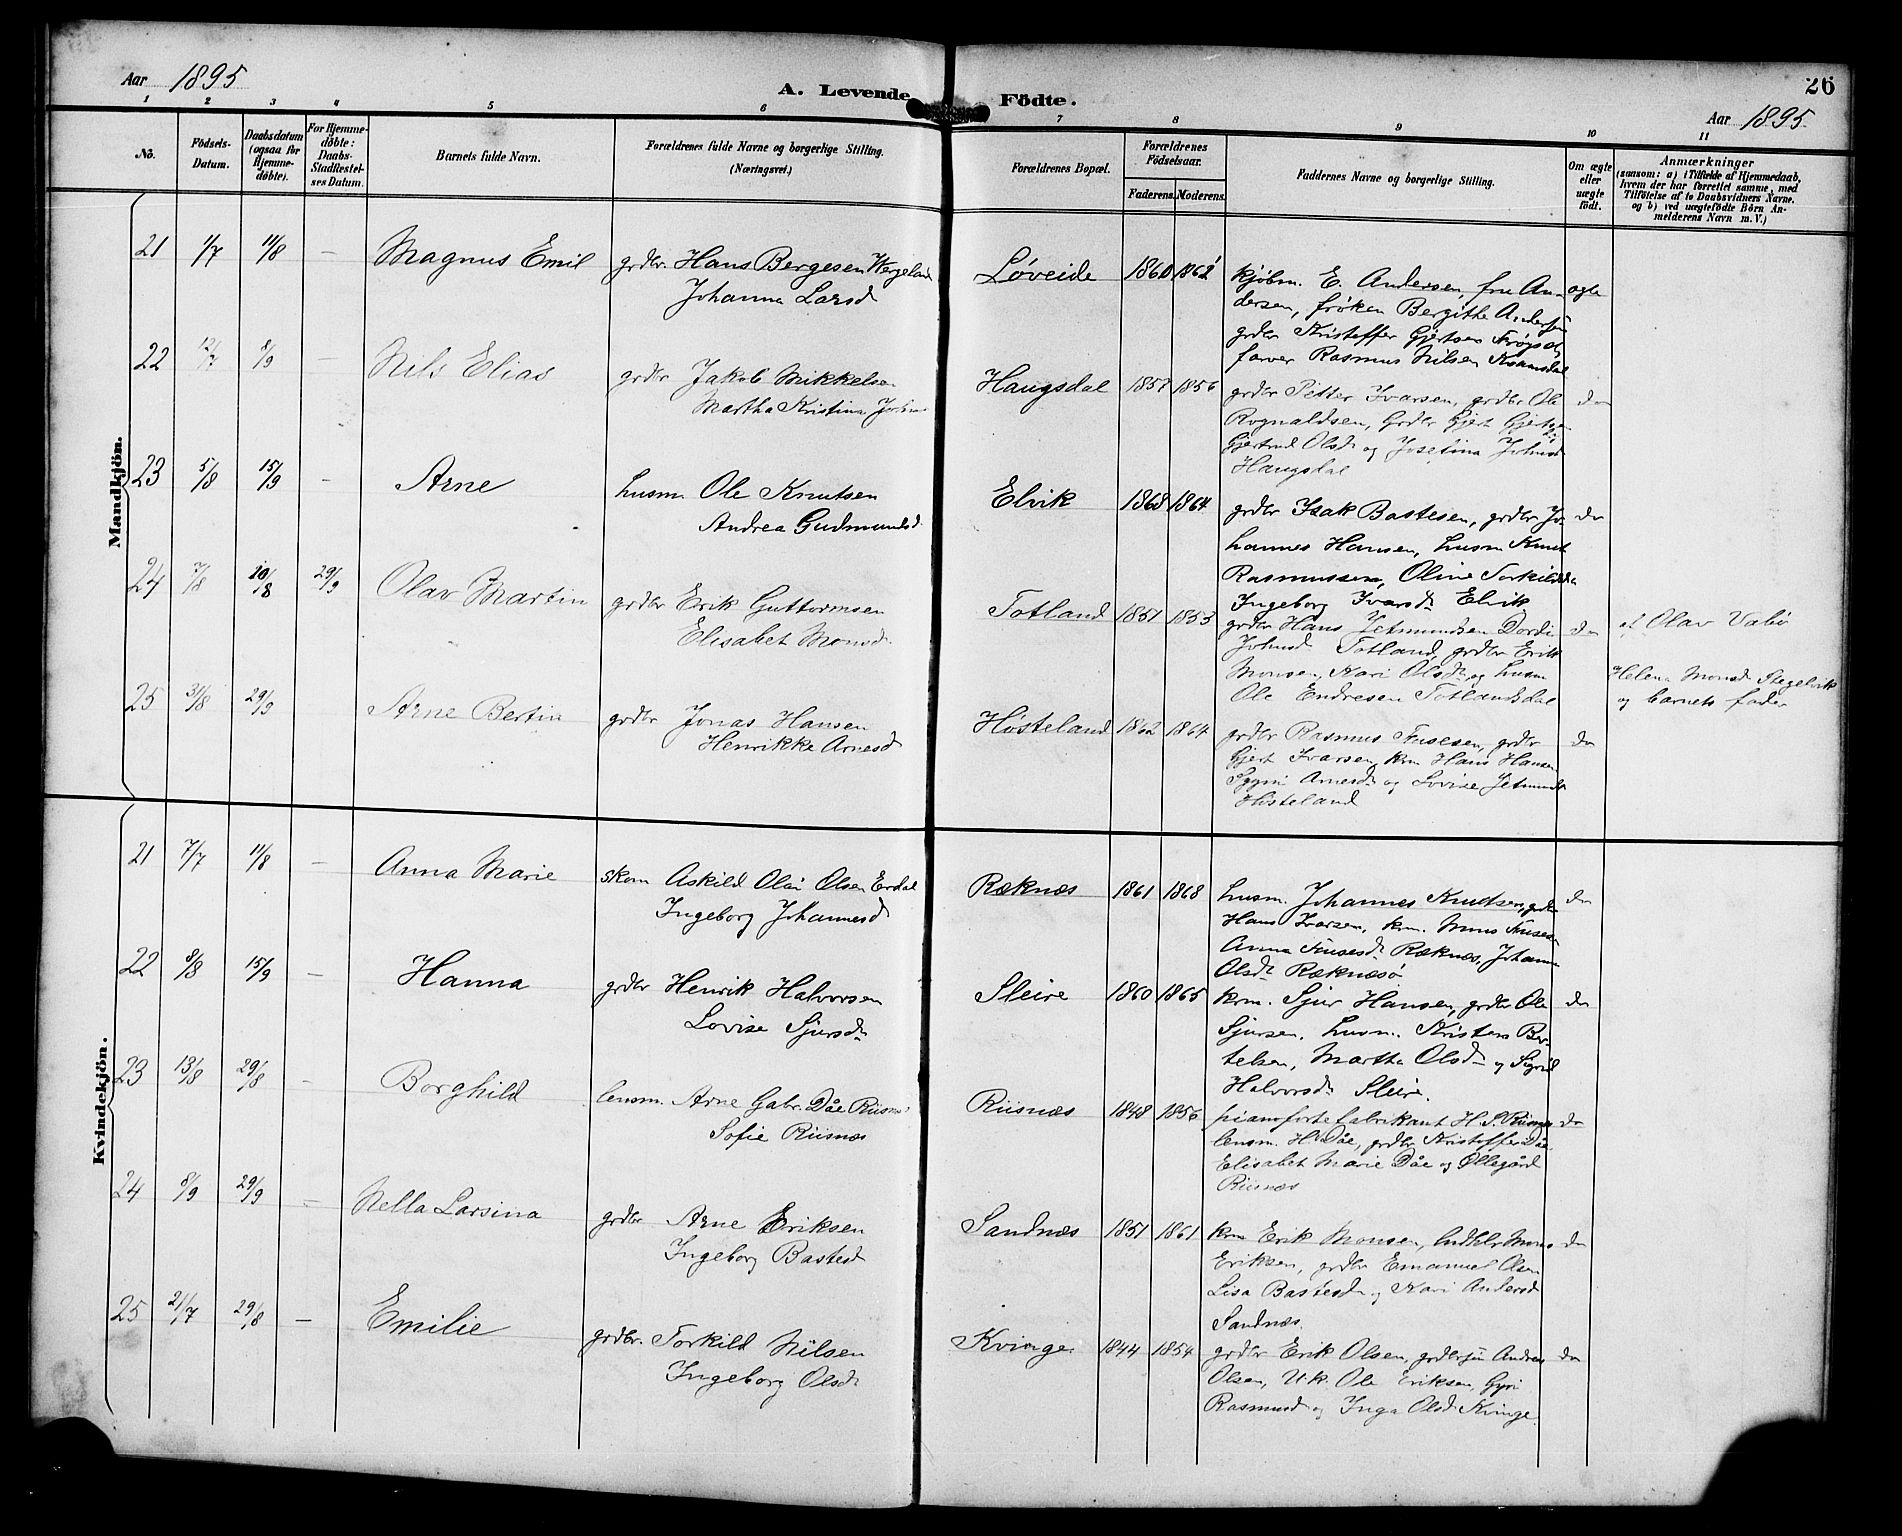 Aar 1895
A. Levende Födte.
26
Aar 1895
1 2 3 4 5 6 7 8 9 10 11
No.
Födsels-Datum.
Daabsdatum (ogsaa for Hjemme-döbte).
For Hjemme-döbte: Daabs-Stadfæstel-ses Datum.
Barnets fulde Navn.
Forældrenes fulde Navne og borgerlige Stilling. (Næringsvei.)
Forældrenes Bopæl.
Forældrenes Födselsaar.
Faderens. Moderens.
Faddernes Navne og borgerlige Stilling.
Om ægte eller uægte født.
Anmærkninger
(saasom: a) i Tilfælde af Hjemmedaab,
hvem der har forrettet samme, med
Tilföielse af to Daabsvidners Navne.
og b) ved uægtefödte Börn An-
melderens Navn m. V.)
Mandkjön.
21 1/7 11/8 — Magnus Emil grdbr. Hans Bergesen Wergeland
Johanna Larsd
Løveide 1860 1862 kjøbm. E. Andersen, fru An- ægte
dersen, frøken Bergithe Andersen
grdbr Kristoffer Gjertsen
farver Rasmus Nilsen
22 12/7 8/9 — Nils Elias grdbr Jakob Mikkelsen
Martha Kristina Johns
Haugsdal 1857 1856 grdbr Petter Ivarsen, grdbr Ole do
Rognaldsen, Grdbr Gjert Gjertsen
Gjertrud Olsd og Josefina Johnsd
Haugsdal
23 5/8 15/9 — Arne husm. Ole Knutsen
Andrea Gudmundsd.
Elvik 1868 1864 grdbr Isak Bastesen, grdbr Jo- do
hannes Hansen, husm Knut
Rasmussen, Oline Torkildsd
Ingeborg Ivarsd Elvik
24 7/8 10/8 29/9 Olav Martin grdbr Erik Guttormsen
Elisabet Monsd.
Totland 1851 1853 grdbr Hans Jetmundsen Dordi do
Johnsd Totland, grdbr Erik
Monsen, Kari Olsd, og husm
Ole Endresen Totlandsdal
af Olav Valø
Helena Monsd
og barnets fader
25 31/8 29/9 Arne Bertin grdbr Jonas Hansen
Henrikke Arnesd
Høsteland 1862 1864 grdbr Rasmus Fusesen, grdbr do
Gjert Ivarsen, krm Hans Hansen
Arnesd og Lovise Jetmundsd
Høsteland
Kvindekjön.
21 7/7 11/8 — Anna Marie skom Askild Olai Olsen Erdal
Ingeborg Johannesd
Ræknæs 1861 1868 husm. Johannes Knutsen, grdbr do
Hans Ivarsen, krm. Mons Fusesen
Anna Fusesd Ræknæs, Johanna
Olsd Ræknæsø
22 8/8 15/9 — Hanna grdbr Henrik Halvorsen
Lovise Sjursd
Sleire 1860 1865 krm. Sjur Hansen, grdbr Ole do
Sjursen, husm. Kristen Ber-
telsen, Martha Olsd og Sigrid
Halvorsd Sleire.
23 13/8 29/8 — Borghild lensm. Arne Gabr. Dåe Riisnæs
Sofie Riisnæs
Riisnæs 1848 1856 pianofortefabrikant H. S. Riisnæs do
lensm. H. Dåe, grdbr Kristoffer Dåe
Elisabet Marie Dåe og Ollegård
Riisnæs
24 8/9 29/9 — Nella Larsina grdbr Arne Eriksen
Ingeborg Bastesd
Sandnæs 1851 1861 krm Erik Monsen, lndhlr Mons do
Eriksen, grdbr Emanuel Olsen
Lisa Bastesd og Kari Andersd
Sandnæs.
25 21/7 29/8 — Emilie grdbr. Torkild Nilsen
Ingeborg Olsd
Kvinge 1844 1854 grdbr Erik Olsen, grdbrsøn Andreas do
Olsen, U.k. Ole Eriksen, Gyri
Rasmusd og Inga Olsd Kvinge